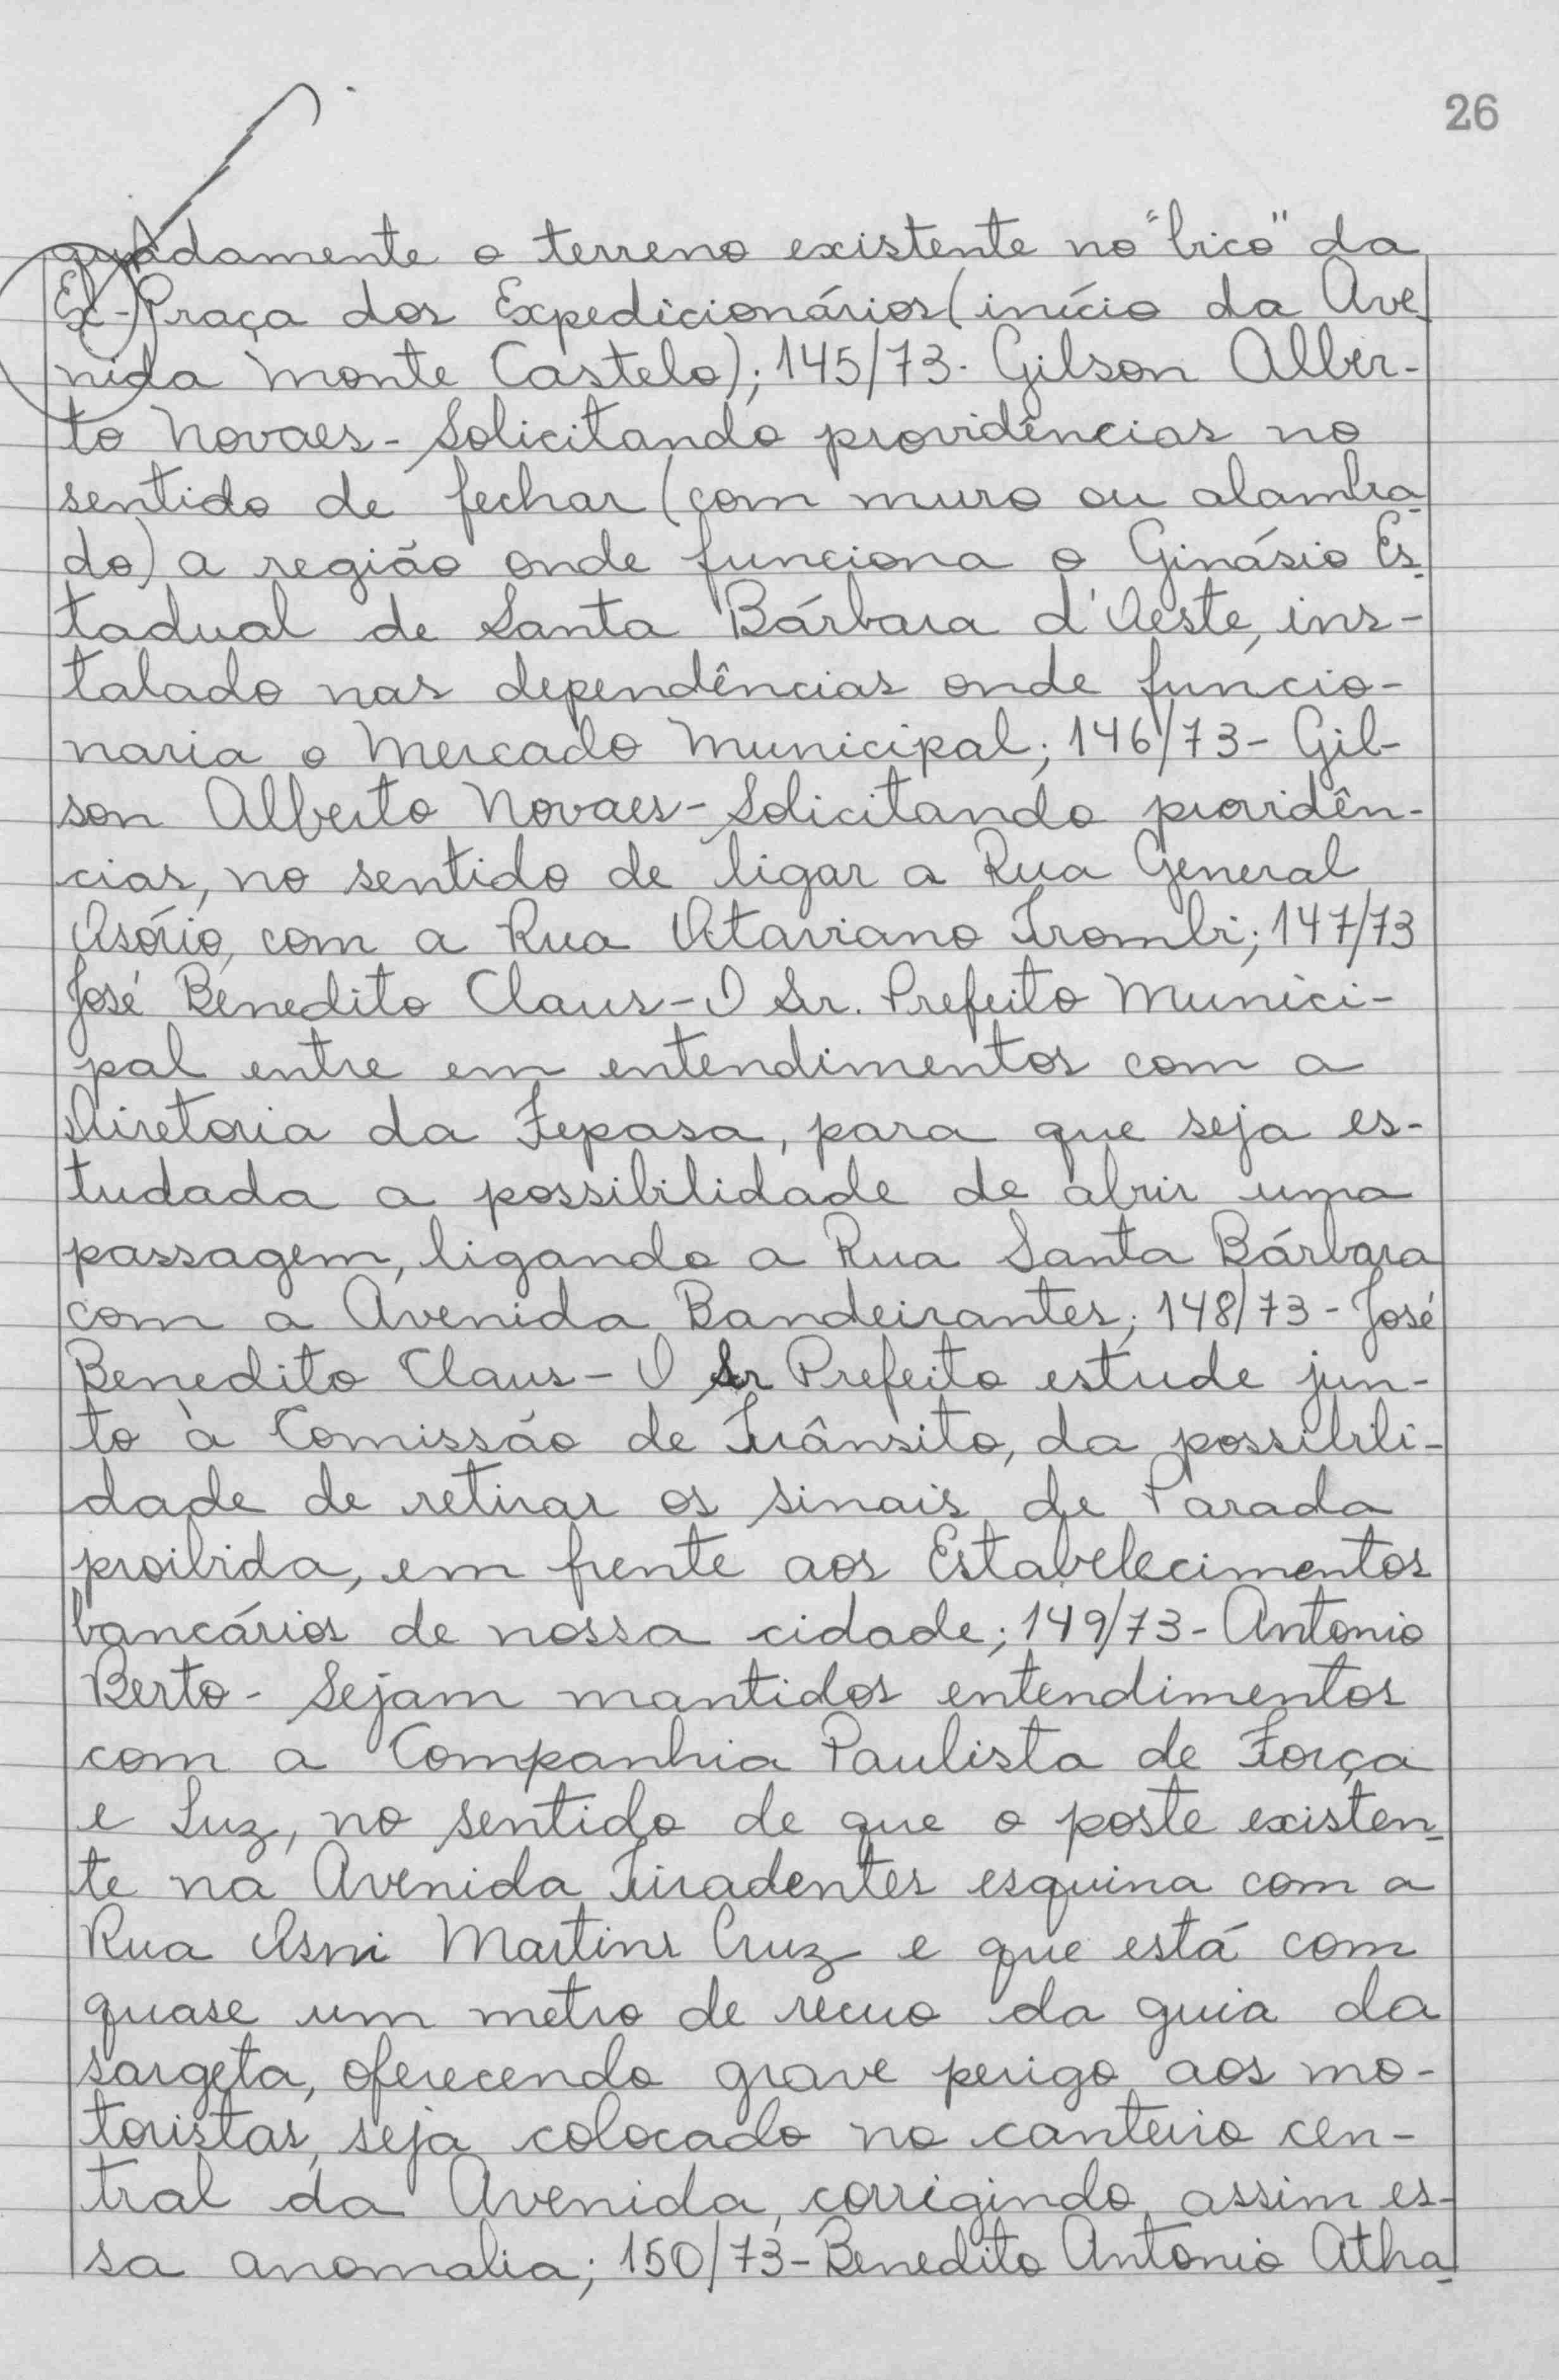 26
quadamente o terreno existente no "bico" da
Ex-Praça dos Expedicionários (início da Ave-
nida Monte Castelo); 145/73- Gilson Alber-
to Novaes - Solicitando providências no
sentido de fechar (com muro ou alambra-
do) a região onde funciona o Ginásio Es-
tadual de Santa Bárbara d'Oeste, ins-
talado nas dependências onde funcio-
naria o Mercado Municipal; 146/73- Gil-
son Alberto Novaes - Solicitando providên-
cias, no sentido de ligar a Rua General
Osório, com a Rua Otaviano Trombi; 147/73
José Benedito Claus - O Sr. Prefeito Munici-
pal entre em entendimentos com a
Diretoria da Fepasa, para que seja es-
tudada a possibilidade de abrir uma
passagem, ligando a Rua Santa Bárbara
com a Avenida Bandeirantes; 148/73 - José
Benedito Claus - O Sr Prefeito estude jun-
to à Comissão de Trânsito, da possibili-
dade de retirar os sinais de Parada
proibida, em frente aos Estabelecimentos
bancários de nossa cidade; 149/73- Antonio
Berto - Sejam mantidos entendimentos
com a Companhia Paulista de Força
e Luz, no sentido de que o poste existen-
te na Avenida Tiradentes esquina com a
Rua Osni Martins Cruz e que está com
quase um metro de recuo da guia da
sargeta, oferecendo grave perigo aos mo-
toristas, seja colocado no canteiro cen-
tral da Avenida, corrigindo assim es-
sa anomalia; 150/73- Benedito Antonio Atha-